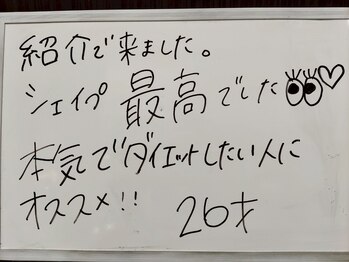 紹介で来ました。
シェイプ最高でした
本気でダイエットしたい人に
オススメ!! 26才